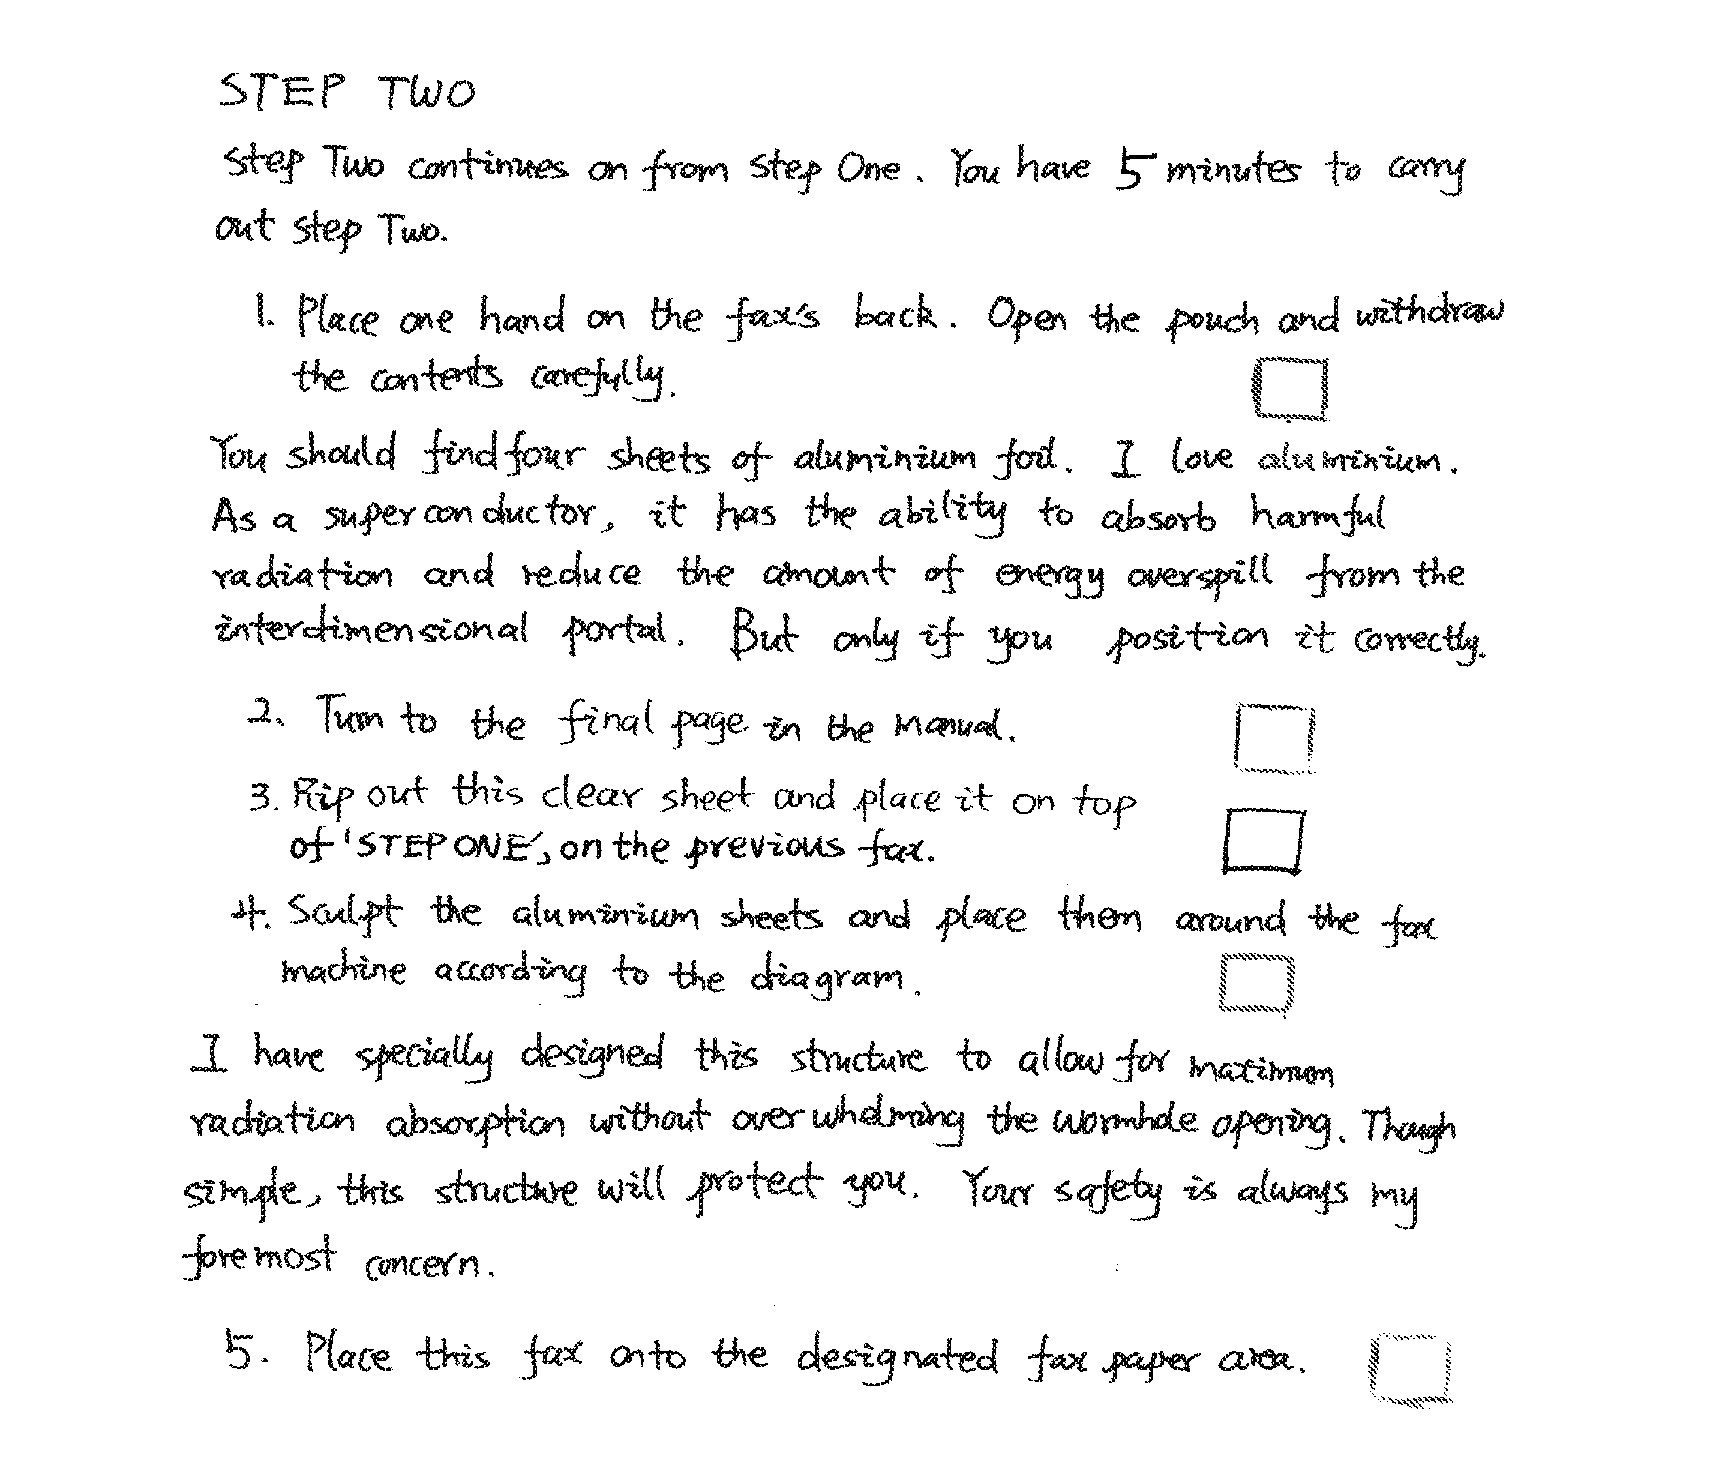 STEP TWO
Step Two continues on from Step One. You have 5 minutes to carry
out Step Two.
1. Place one hand on the fax's back. Open the pouch and withdraw
the contents carefully.
You should find four sheets of aluminium foil. I love aluminium.
As a superconductor, it has the ability to absorb harmful
radiation and reduce the amount of energy overspill from the
interdimensional portal. But only if you position it correctly.
2. Turn to the final page in the Manual.
3. Rip out this clear sheet and place it on top
of 'STEP ONE', on the previous fax.
4. Sculpt the aluminium sheets and place them around the fax
machine according to the diagram.
I have specially designed this structure to allow for maximum
radiation absorption without overwhelming the wormhole opening. Though
simple, this structure will protect you. Your safety is always my
foremost concern.
5. Place this fax onto the designated fax paper area.